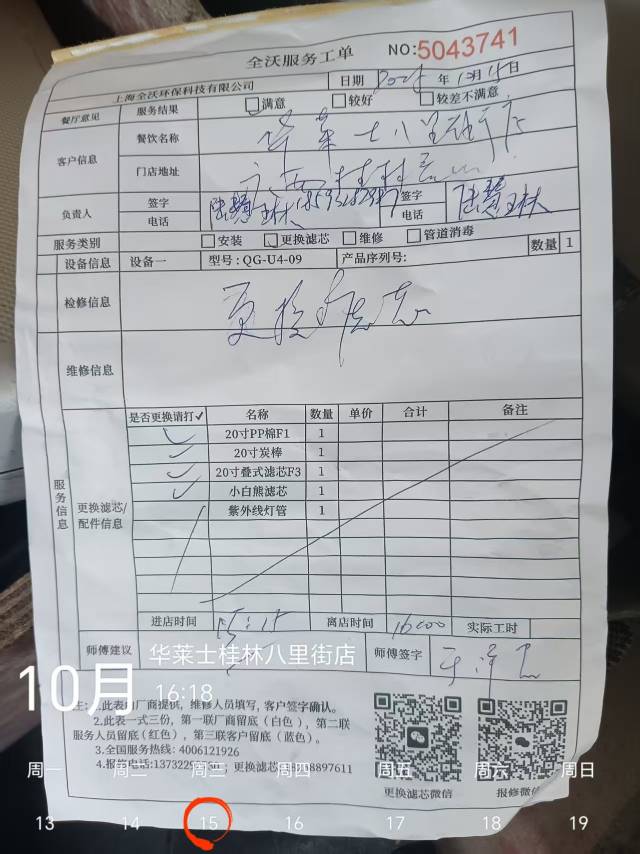 全沃服务工单 NO:5043741
上海全沃环保科技有限公司 日期 年10月15日
餐厅意见 服务结果 满意 较好 较差不满意
客户信息 餐饮名称 华莱士八里街店
门店地址 广西桂林
负责人 签字 签字
电话 电话
服务类别 安装 更换滤芯 维修 管道消毒 数量 1
设备信息 设备一 型号:QG-U4-09 产品序列号:
检修信息 更换滤芯
维修信息
服务信息 更换滤芯/配件信息
是否更换请打✓ 名称 数量 单价 合计 备注
✓ 20寸PP棉F1 1
✓ 20寸炭棒 1
✓ 20寸叠式滤芯F3 1
✓ 小白熊滤芯 1
紫外线灯管 1
进店时间 15:15 离店时间 16:00 实际工时
师傅建议 师傅签字
华莱士桂林八里街店
10月 16:18
注:1.此表由厂商提供,维修人员填写,客户签字确认。
2.此表一式三份,第一联厂商留底(白色),第二联
服务人员留底(红色),第三联客户留底(蓝色)。
3.全国服务热线:4006121926
4.报修电话: 更换滤芯
更换滤芯微信 报修微信
周一 周二 周三 周四 周五 周六 周日
13 14 15 16 17 18 19